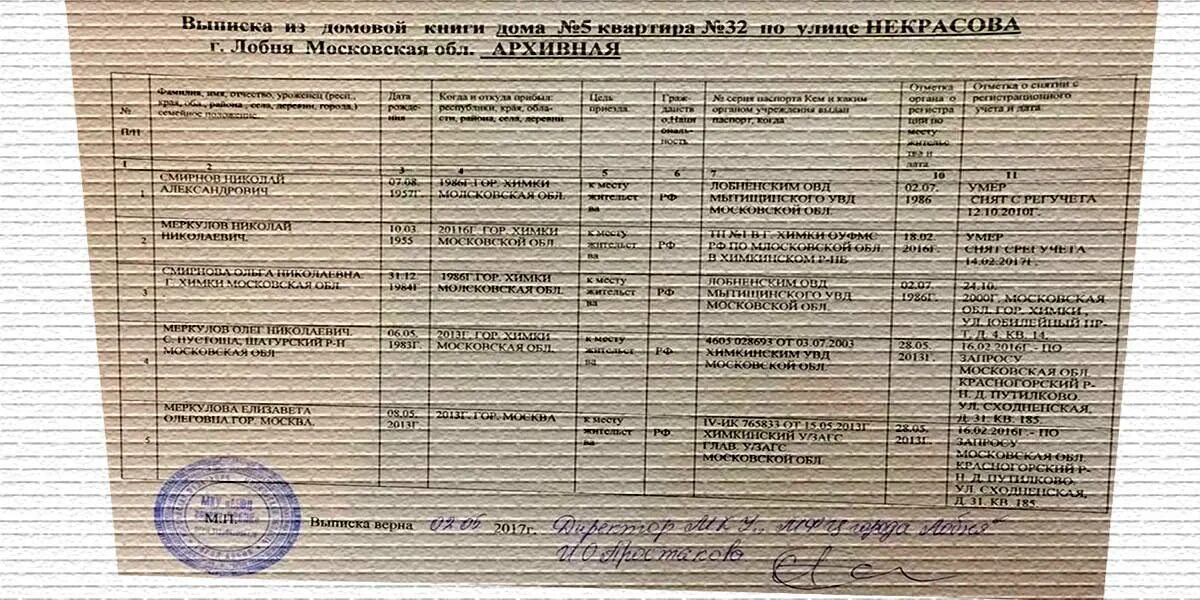 Выписка из домовой книги дома №5 квартира №32 по улице НЕКРАСОВА
г. Лобня Московская обл. АРХИВНАЯ
№ п/п
Фамилия, имя, отчество, уроженец (респ., края, обл., района, села, деревни, города,) семейное положение.
Дата рождения
Когда и откуда прибыл: республики, края, области, района, села, деревни
Цель приезда
Гражданство,Национальность
№ серия паспорта Кем и каким органом учреждения выдан паспорт, когда
Отметка органа о регистрации по месту жительства и дата
Отметка о снятии с регистрационного учета и дата
1 2 3 4 5 6 7 10 11
1
СМИРНОВ НИКОЛАЙ
АЛЕКСАНДРОВИЧ
07.08.
1957Г.
1986Г.ГОР. ХИМКИ
МОЛСКОВСКАЯ ОБЛ.
к месту
жительст
ва
РФ
ЛОБНЕНСКИМ ОВД
МЫТИЩИНСКОГО УВД
МОСКОВСКОЙ ОБЛ.
02.07.
1986
УМЕР
СНЯТ С РЕГУЧЕТА
12.10.2010Г.
2
МЕРКУЛОВ НИКОЛАЙ
НИКОЛАЕВИЧ.
10.03.
1955
20116Г. ГОР. ХИМКИ
МОСКОВСКОЙ ОБЛ.
к месту
жительст
ва
РФ
ТП №1 В Г. ХИМКИ ОУФМС
РФ ПО МЛОСКОВСКОЙ ОБЛ.
В ХИМКИНСКОМ Р-НЕ
18.02.
2016Г.
УМЕР
СНЯТ СРЕГУЧЕТА
14.02.2017Г.
3
СМИРНОВА ОЛЬГА НИКОЛАЕВНА.
Г. ХИМКИ МОСКОВСКАЯ ОБЛ.
31.12.
1984Г
1986Г.ГОР. ХИМКИ
МОЛСКОВСКАЯ ОБЛ.
к месту
жительст
ва
РФ
ЛОБНЕНСКИМ ОВД
МЫТИЩИНСКОГО УВД
МОСКОВСКОЙ ОБЛ.
02.07.
1986Г.
24.10.
2000Г. МОСКОВСКАЯ
ОБЛ. ГОР. ХИМКИ ,
УЛ. ЮБИЛЕЙНЫЙ ПР-
Т, Д. 4, КВ. 14.
4
МЕРКУЛОВ ОЛЕГ НИКОЛАЕВИЧ.
С. ПУСТОША, ШАТУРСКИЙ Р-Н
МОСКОВСКАЯ ОБЛ
06.05.
1983Г.
2013Г. ГОР. ХИМКИ
МОСКОВСКАЯ ОБЛ.
к месту
жительст
ва
РФ
4605 028693 ОТ 03.07.2003
ХИМКИНСКИМ УВД
МОСКОВСКОЙ ОБЛ.
28.05.
2013Г.
16.02.2016Г.- ПО
ЗАПРОСУ
МОСКОВСКАЯ ОБЛ.
КРАСНОГОРСКИЙ Р-
Н. Д. ПУТИЛКОВО.
УЛ. СХОДНЕНСКАЯ,
Д. 31. КВ. 185.
5
МЕРКУЛОВА ЕЛИЗАВЕТА
ОЛЕГОВНА ГОР. МОСКВА.
08.05.
2013Г.
2013Г. ГОР. МОСКВА
к месту
жительст
ва
РФ
IV-ИК 765833 ОТ 15.05.2013Г
ХИМКИНСКИЙ У/ЗАГС
ГЛАВ. У/ЗАГС
МОСКОВСКОЙ ОБЛ.
28.05.
2013Г.
16.02.2016Г.- ПО
ЗАПРОСУ
МОСКОВСКАЯ ОБЛ.
КРАСНОГОРСКИЙ Р-
Н. Д. ПУТИЛКОВО.
УЛ. СХОДНЕНСКАЯ,
Д. 31. КВ. 185.
М.П. Выписка верна 02.05 2017г. Директор МКУ "МФЦ города Лобня"
И.О. Простакова